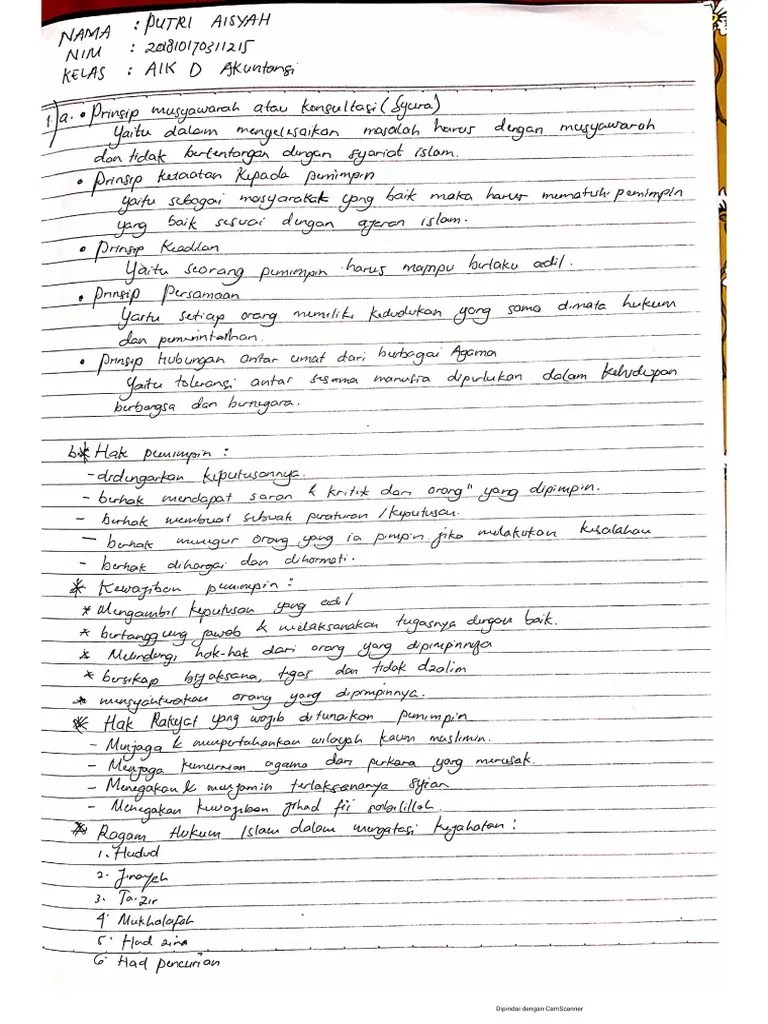 NAMA : PUTRI AISYAH
NIM : 201810170311215
KELAS : AIK D Akuntansi
1.) a. • Prinsip musyawarah atau konsultasi (Syura)
Yaitu dalam mengelesaikan masalah harus dengan musyawarah
dan tidak bertentangan dengan syariat islam.
• Prinsip ketaatan kepada pemimpin
yaitu sebagai masyarakat yang baik maka harus mematuhi pemimpin
yang baik sesuai dengan ajaran islam.
• Prinsip Keadilan
Yaitu seorang pemimpin harus mampu berlaku adil.
• Prinsip Persamaan
Yaitu setiap orang memiliki kedudukan yang sama dimata hukum
dan pemerintahan.
• Prinsip Hubungan antar umat dari berbagai Agama
Yaitu toleransi antar sesama manusia diperlukan dalam kehidupan
berbangsa dan bernegara.
b.* Hak pemimpin :
- didengarkan keputusannya.
- berhak mendapat saran & kritik dari orang" yang dipimpin.
- berhak membuat sebuah peraturan /keputusan.
- berhak menegur orang yang ia pimpin jika melakukan kesalahan
- berhak dihargai dan dihormati.
* Kewajiban pemimpin :
* Mengambil keputusan yang adil
* bertanggung jawab & melaksanakan tugasnya dengan baik.
* Melindungi hak-hak dari orang yang dipimpinnya
* bersikap bijaksana, tegas dan tidak dzalim
* mensyanturakan orang yang dipimpinnya.
* Hak Rakyat yang wajib ditunaikan pemimpin
- Menjaga & mempertahankan wilayah kaum muslimin.
- Menjaga kemurnian agama dari perkara yang merusak.
- Menegakan & menjamin terlaksananya syiar
- Menegakan kewajiban jihad fii sabilillah.
* Ragam Hukum Islam dalam mengatasi kejahatan :
1. Hudud
2. Jinayah
3. Ta'zir
4. Mukhalafah
5. Had zina
6. Had pencurian
Dipindai dengan CamScanner